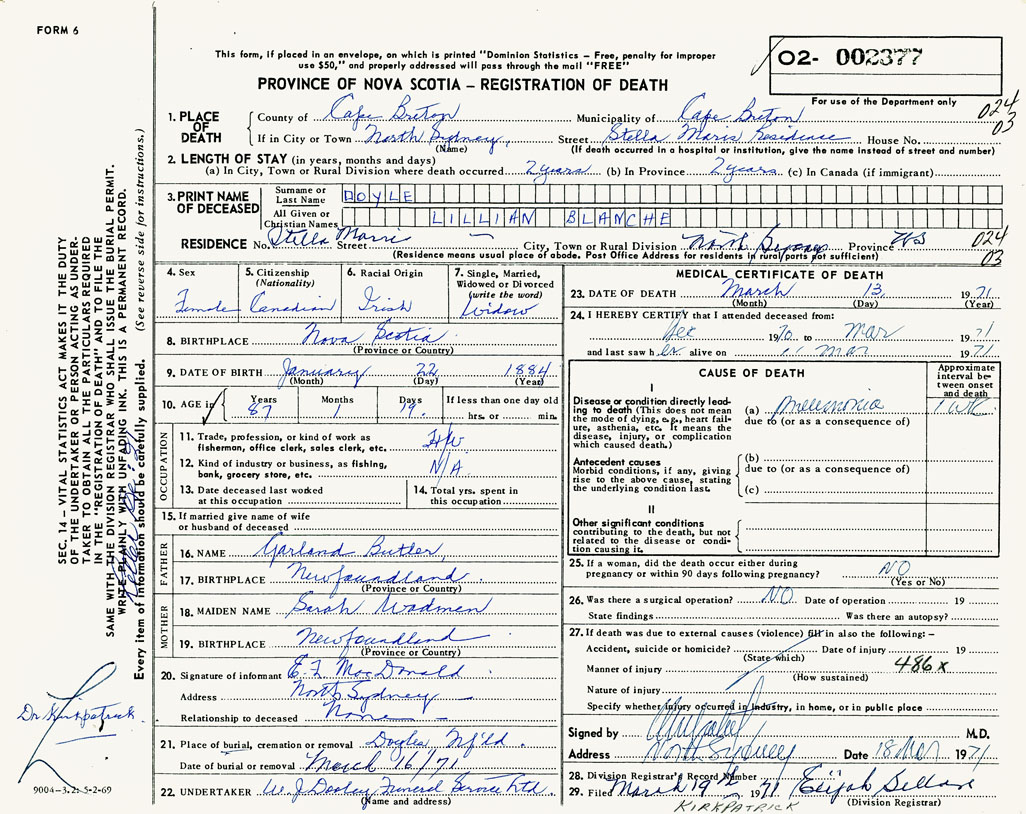 FORM 6
This form, if placed in an envelope, on which is printed "Dominion Statistics – Free, penalty for improper
use $50," and properly addressed will pass through the mail "FREE"
PROVINCE OF NOVA SCOTIA – REGISTRATION OF DEATH
02- 002377
For use of the Department only
024
03
1. PLACE OF DEATH
County of Cape Breton Municipality of Cape Breton
If in City or Town North Sydney, Street Stella Maris Residence House No.
(Name) (If death occurred in a hospital or institution, give the name instead of street and number)
2. LENGTH OF STAY (in years, months and days)
(a) In City, Town or Rural Division where death occurred 2 years (b) In Province 2 years (c) In Canada (if immigrant)
3. PRINT NAME OF DECEASED
Surname or Last Name DOYLE
All Given or Christian Names LILLIAN BLANCHE
RESIDENCE No. Stella Maris Street – City, Town or Rural Division North Sydney Province NS
024
03
(Residence means usual place of abode. Post Office Address for residents in rural parts not sufficient)
4. Sex Female
5. Citizenship (Nationality) Canadian
6. Racial Origin Irish
7. Single, Married, Widowed or Divorced (write the word) Widow
8. BIRTHPLACE Nova Scotia
(Province or Country)
9. DATE OF BIRTH January 22 1884
(Month) (Day) (Year)
10. AGE in Years 87 Months 1 Days 19. If less than one day old hrs. or min.
OCCUPATION
11. Trade, profession, or kind of work as fisherman, office clerk, sales clerk, etc. H/W
12. Kind of industry or business, as fishing, bank, grocery store, etc. N/A
13. Date deceased last worked at this occupation
14. Total yrs. spent in this occupation
15. If married give name of wife or husband of deceased
FATHER
16. NAME Garland Butler,
17. BIRTHPLACE Newfoundland.
(Province or Country)
MOTHER
18. MAIDEN NAME Sarah Wadmen
19. BIRTHPLACE Newfoundland
(Province or Country)
20. Signature of informant E. F. MacDonald
Address North Sydney
Relationship to deceased None
21. Place of burial, cremation or removal Nf'ld.
Date of burial or removal March 16/71
22. UNDERTAKER W. J. Dooley Funeral Service Ltd.
(Name and address)
MEDICAL CERTIFICATE OF DEATH
23. DATE OF DEATH March 13 1971
(Month) (Day) (Year)
24. I HEREBY CERTIFY that I attended deceased from:
1970 to Mar 1971
and last saw her alive on 11 Mar 1971
CAUSE OF DEATH
Approximate interval between onset and death
I
Disease or condition directly leading to death (This does not mean the mode of dying, e.g., heart failure, asthenia, etc. It means the disease, injury, or complication which caused death.)
(a) Pneumonia 1 wk
due to (or as a consequence of)
Antecedent causes
Morbid conditions, if any, giving rise to the above cause, stating the underlying condition last.
(b)
due to (or as a consequence of)
(c)
II
Other significant conditions contributing to the death, but not related to the disease or condition causing it.
25. If a woman, did the death occur either during pregnancy or within 90 days following pregnancy? NO
(Yes or No)
26. Was there a surgical operation? NO Date of operation 19
State findings Was there an autopsy?
27. If death was due to external causes (violence) fill in also the following:–
Accident, suicide or homicide? Date of injury 19
(State which)
Manner of injury 486x
(How sustained)
Nature of injury
Specify whether injury occurred in industry, in home, or in public place
Signed by M.D.
Address North Sydney Date 18 Mar 1971
28. Division Registrar's Record Number
29. Filed March 19th 1971 Elijah
(Division Registrar)
KIRKPATRICK
SEC. 14 – VITAL STATISTICS ACT MAKES IT THE DUTY
OF THE UNDERTAKER OR PERSON ACTING AS UNDERTAKER TO OBTAIN ALL THE PARTICULARS REQUIRED
IN THE "REGISTRATION OF DEATH" AND TO FILE THE
SAME WITH THE DIVISION REGISTRAR WHO SHALL ISSUE THE BURIAL PERMIT.
WRITE PLAINLY WITH UNFADING INK. THIS IS A PERMANENT RECORD.
Every item of information should be carefully supplied. (See reverse side for instructions.)
Dr. Kirkpatrick.
9004-3.2: 5-2-69